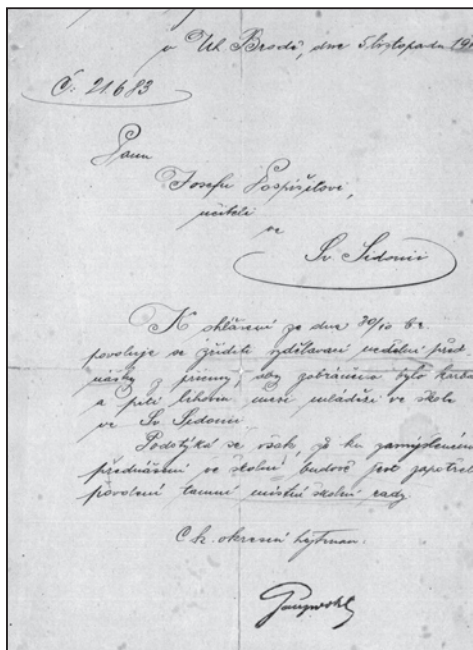 v Uh. Brodě, dne 5. listopadu 19
Č: 21.683
Panu
Josefu Pospíšilovi,
učiteli
ve
Sv. Sidonii
K ohlášení ze dne 30/10 b.r.
povoluje se zříditi vzdělávací nedělní před
nášky z příčiny, aby zabráněno bylo karba
a pití lihovin mezi mládeží ve škole
ve Sv. Sidonii.
Podotýká se však, že ku zamýšleném
přednášení ve školní budově jest zapotřeb
povolení tamní místní školní rady.
C.k. okresní hejtman.